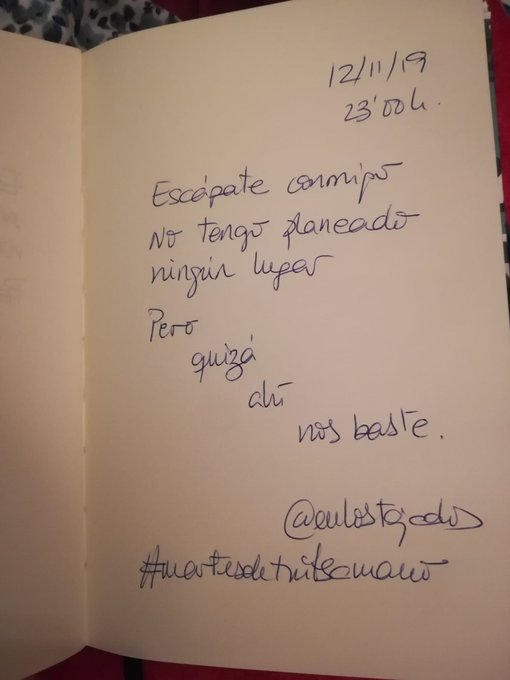 12/11/19
23'00h.
Escápate conmigo
No tengo planeado
ningún lugar
Pero
quizá
ahí
nos baste.
@enlostejados
#martesdetuitsamano